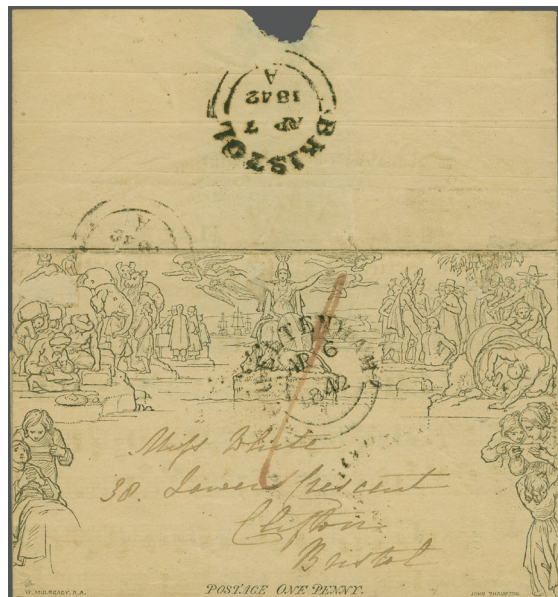 BRISTOL
AP 7
1842
A
A
AP 6
1842
Miss White
38. Lower Crescent
Clifton
Bristol
W. MULREADY. R.A.
POSTAGE ONE PENNY.
JOHN THOMPSON